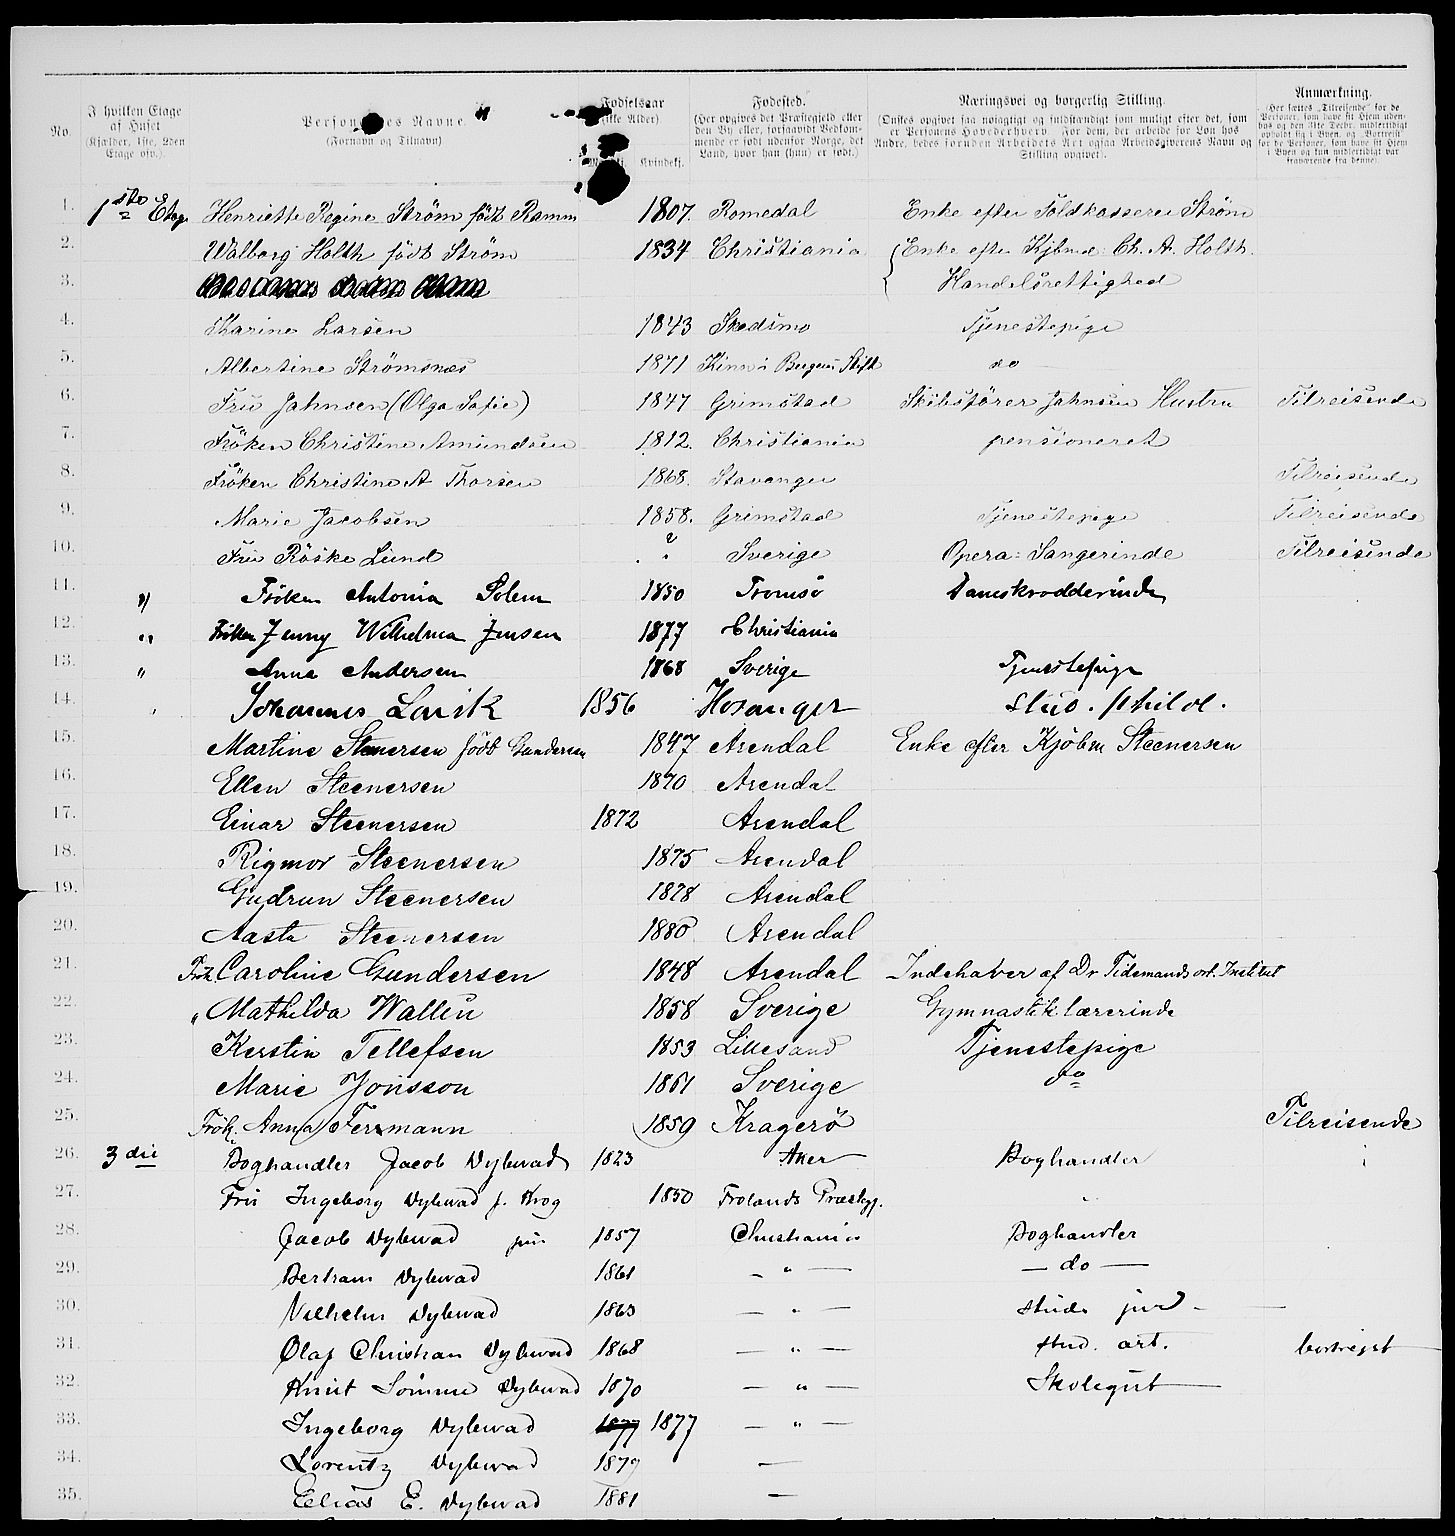 No. | I hvilken Etage af Huset (Kjælder, 1ste, 2den Etage osv.). | Personernes Navne. (Fornavn og Tilnavn) | Fødselsaar (ikke Alder) Mandkj. Kvindekj. | Fødested. (Her opgives det Præstegjeld eller den By eller, forsaavidt Vedkommende er født udenfor Norge, det Land, hvor han (hun) er født.) | Næringsvei og borgerlig Stilling. (Ønskes opgivet saa nøiagtigt og fuldstændigt som muligt efter det, som er Personens Hovederhverv. For dem, der arbeide for Løn hos Andre, bedes foruden Arbeidets Art ogsaa Arbeidsgiverens Navn og Stilling opgivet). | Anmærkning. (Her sættes „Tilreisende" for de Personer, som have sit Hjem udenbys og den 31te Decbr. midlertidigt opholdt sig i Byen, og „Bortreist" for de Personer, som have sit Hjem i Byen og kun midlertidigt var fraværende fra denne).
1. 1ste Etage Henriette Regine Strøm født Ramm 1807. Romedal Enke efter Toldkasserer Strøm
2. Walborg Holth født Strøm 1834 Christiania Enke efter Kjbmd. Ch. A. Holth.
3. Handelsrettighed
4. Karine Larsen 1843 Skedsmo Tjenestepige
5. Albertine Strømsnæs 1871 Kinn i Bergens Stift do
6. Fru Jahnsen (Olga Sofie) 1847 Grimstad Skibsfører Jahnsen Hustru Tilreisende
7. Frøken Christine Amundsen 1812. Christiania pensioneret
8. Frøken Christine A Thorsen 1868. Stavanger Tilreisende
9. Marie Jacobsen 1858. Grimstad Tjenestepige Tilreisende
10. Fru Röske Lund ? Sverige Opera-Sangerinde Tilreisende
11. " Frøken Antonia Solem 1850 Tromsø Dameskrædderinde
12. " Frøken Jenny Wilhelma Jensen 1877 Christiania
13. " Anna Andersen 1868 Sverige Tjenestepige
14. " Johannes Lavik 1856 Hosanger stud. philol.
15. Martine Steenersen født Gundersen 1847 Arendal Enke efter Kjøbm Steenersen
16. Ellen Steenersen 1870 Arendal
17. Einar Steenersen 1872 Arendal
18. Rigmor Steenersen 1875 Arendal
19. Gudrun Steenersen 1878 Arendal
20. Aasta Steenersen 1880 Arendal
21. Frk. Caroline Gundersen 1848 Arendal Indehaver af Dr Tidemands ort. Institut
22. " Mathilda Wallin 1858 Sverige Gymnastiklærerinde
23. Kerstin Tellefsen 1853 Lillesand Tjenestepige
24. Marie Jonsson 1861 Sverige do
25. Frøk. Anna Fermann 1859 Kragerø Tilreisende
26. 3die Boghandler Jacob Dybwad 1823 Aker Boghandler
27. Fru Ingeborg Dybwad f. Krog 1850 Frolands Præstegj. "
28. Jacob Dybwad jun 1857 Christiania Boghandler
29. Bertram Dybwad 1861 — " — — do —
30. Vilhelm Dybwad 1863 — " — stud. jur —
31. Olaf Christian Dybwad 1868 — " — stud. art. bortreist
32. Knut Sömme Dybwad 1870 — " — Skolegut
33. Ingeborg Dybwad 1877 1877 — " —
34. Lorentz Dybwad 1879 —
35. Elias E. Dybwad 1881 —